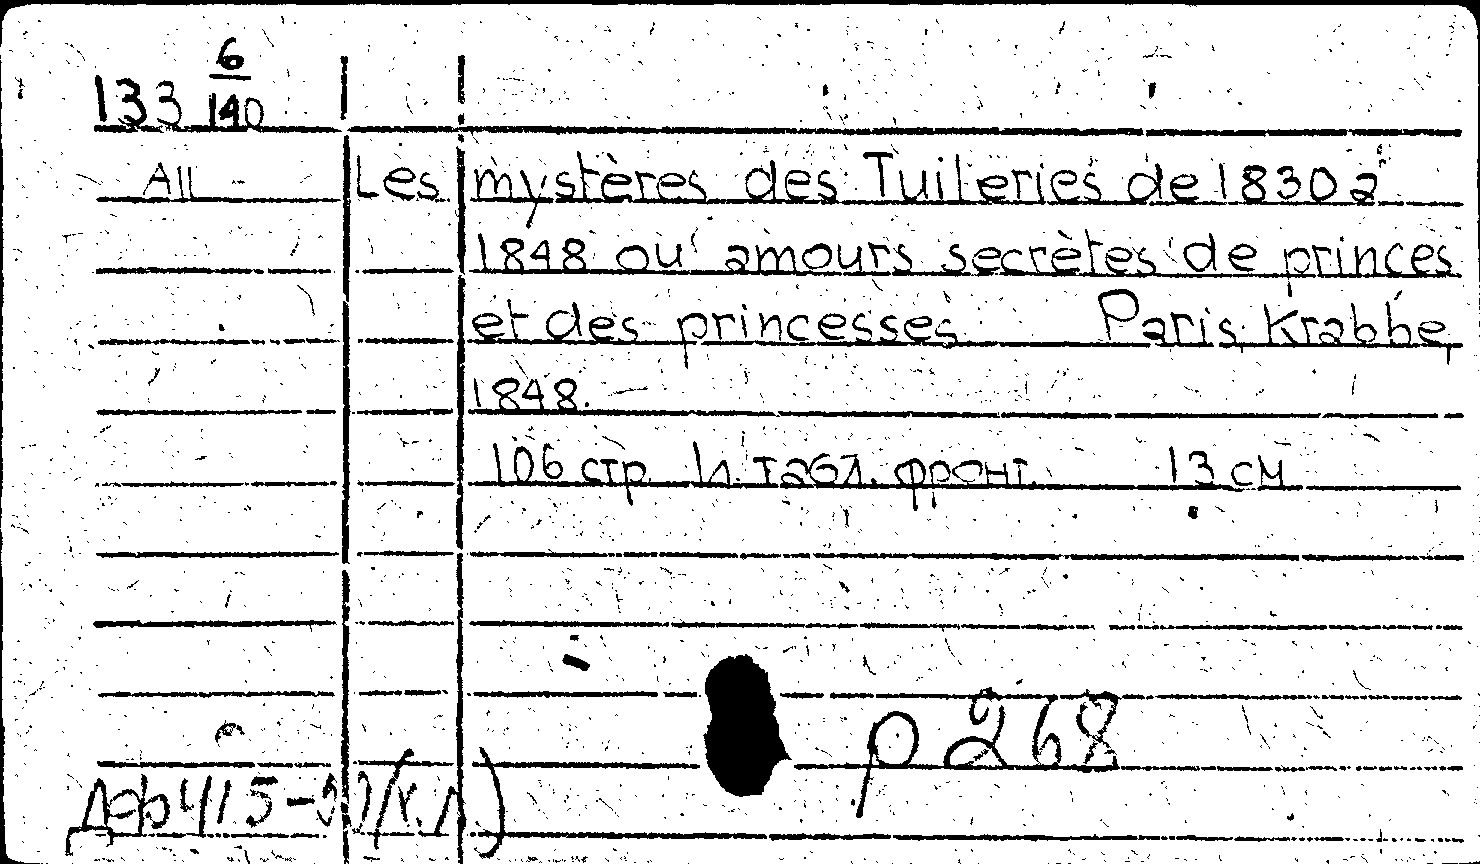 133 6/140
All Les mystères des Tuileries de 1830 à
1848 ou amours secrètes de princes
et des princesses Paris, Krabbe,
1848.
106 стр. 1 л. табл. фронт. 13 см
р 268